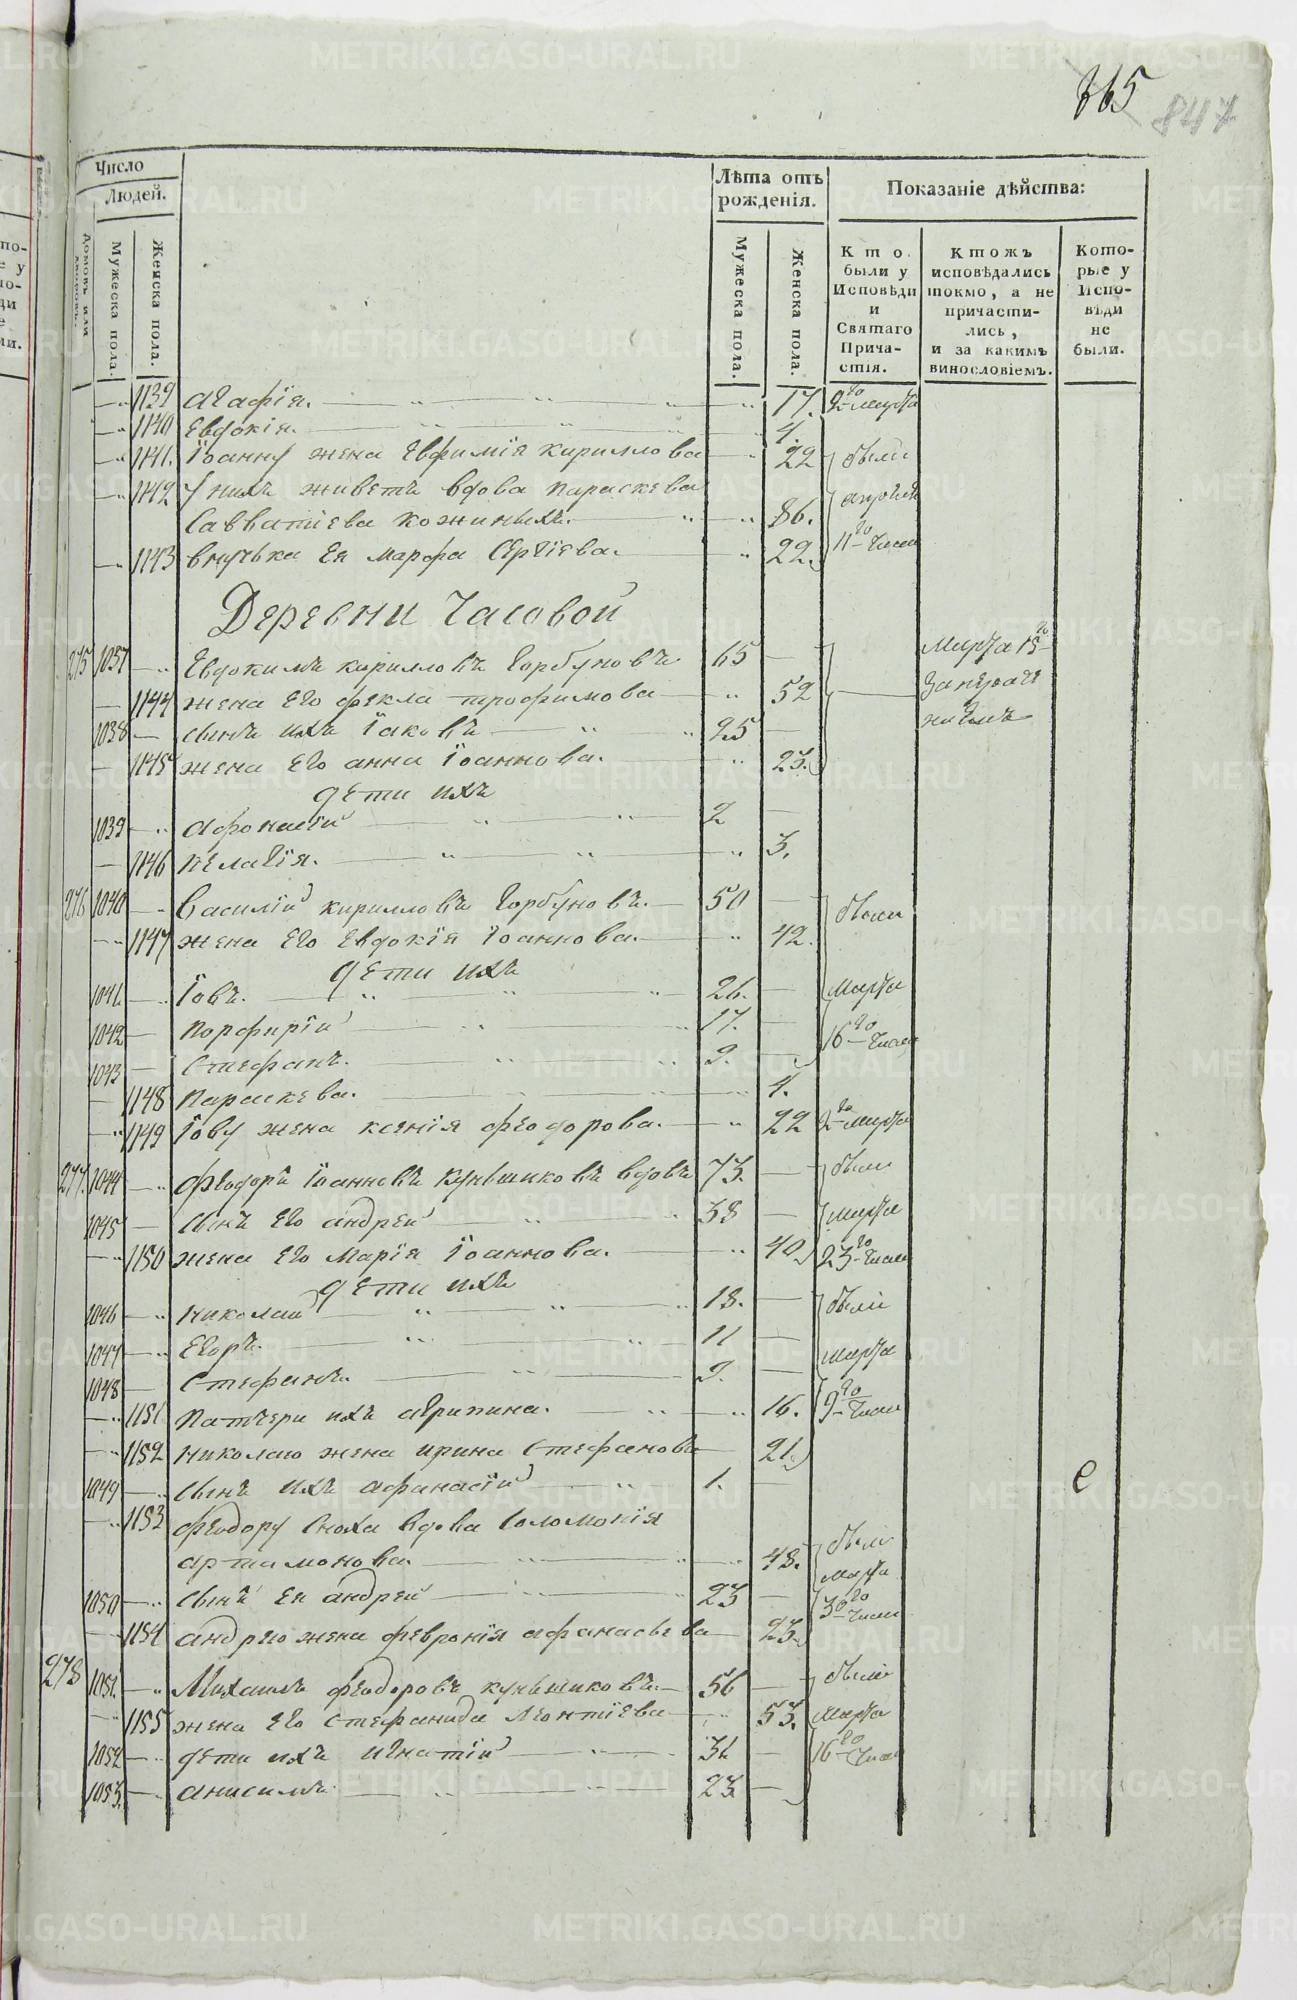 365
847
Число
Людей.
Лѣта отъ
рожденія.
Показаніе дѣйства:
Домовъ или дворовъ.
Мужеска пола.
Женска пола.
Мужеска пола.
Женска пола.
Кто были у Исповѣди и Святаго Причастія.
Ктожъ исповѣдались токмо, а не причастились, и за какимъ винословіемъ.
Которые у Исповѣди не были.
1139 Агафія. 17. 2го марта
1140 Евдокія. 4.
1141. Іоанну жена Евфимія Кириллова 22 были
1142 У нихъ живетъ вдова Параскева
Савватіева Кожиныхъ. 86. апрѣля
1143 внучька Ея Марфа Сергіева. 22. 11го числа
Деревни Часовой
275 1037 Евдокимъ Кирилловъ Горбуновъ 65 Марта 15го
1144 жена Его Фекла Трофимова 52
1038 сынъ ихъ Іаковъ 25
1145 жена Его Анна Іоаннова. 23.
дети ихъ
1039 Афонасій 2
1146 Пелагія. 3.
276 1040 Василій Кирилловъ Горбуновъ. 50 были
1147 жена Его Евдокія Іоаннова. 42.
дети ихъ
1041. Іовъ. 26. Марта
1042 Порфирій 17. 16го числа
1043 Стефанъ. 9.
1148 Параскева. 4.
1149 Іову жена Ксенія Феодорова. 22 2го марта
277. 1044 Феодоръ Іоанновъ Куньщиковъ вдовъ 73. были
1045 сынъ Его Андрей 38 марта
1150 жена Его Марія Іоаннова. 40. 23го числа
дети ихъ
1046 Николай 18. были
1047 Егоръ. 11 марта
1048 Стефанъ. 9.
1151. Патчери ихъ Агрипина. 16. 9го числа
1152 Николаю жена Ирина Стефанова 21.
1049 сынъ ихъ Афанасій 1.
1153 Феодору сноха вдова Соломонія
Артамонова. 48. были
Марта
1050 сынъ Ея Андрей 23 30го числа
1154 Андрею жена Февронія Афанасьева 23.
278 1051. Михаилъ Феодоровъ Куньщиковъ. 56 были
1155 жена Его Стефанида Леонтіева 53. Марта
1052 дети ихъ Игнатій 31 16го числа
1053. Анисимъ 23.